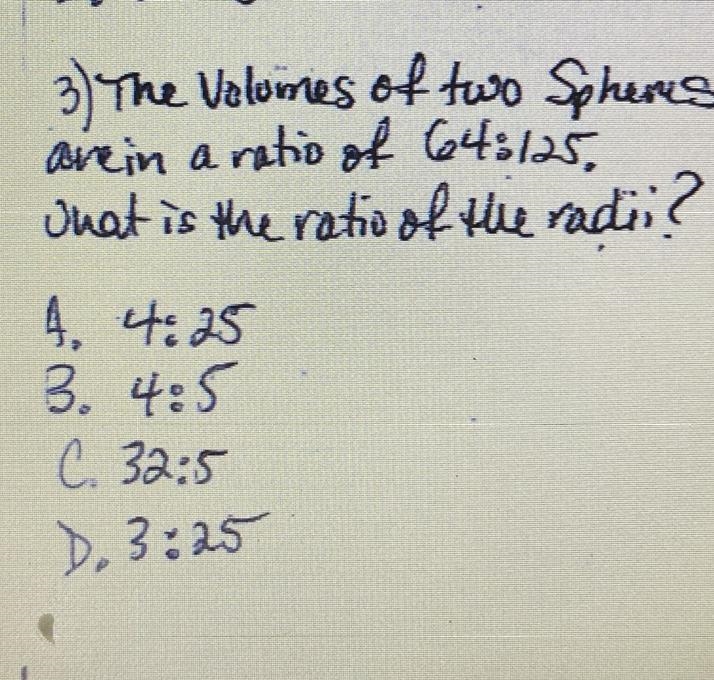 3) The Volumes of two Spheres
are in a ratio of 64:125.
What is the ratio of the radii?
A. 4:25
B. 4:5
C. 32:5
D. 3:25